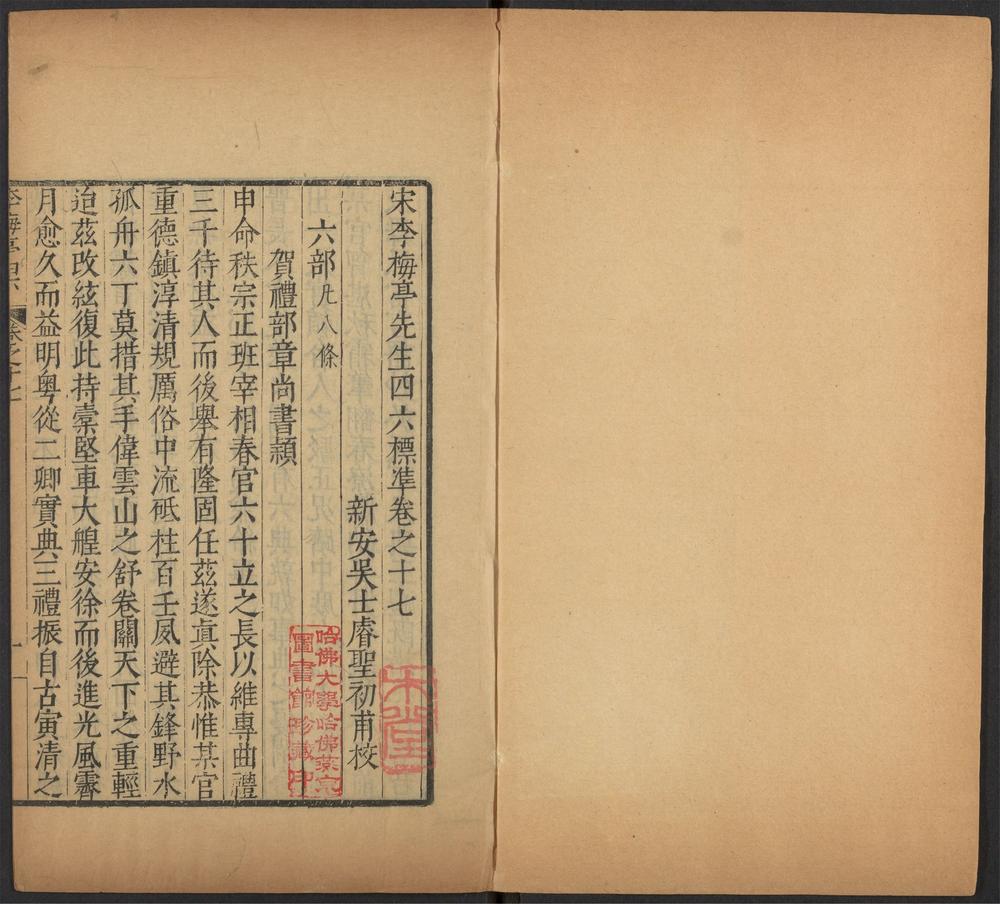 宋李梅亭先生四六標準卷之十七
新安吳士睿聖初甫校
六部凡八條
賀禮部章尚書穎
申命秩宗正班宰相春官六十立之長以維專曲禮
三千待其人而後舉有隆固任茲遂眞除恭惟某官
重德鎮淳清規厲俗中流砥柱百壬夙避其鋒野水
孤舟六丁莫措其手偉雲山之舒卷關天下之重輕
迨茲改絃復此持橐堅車大艑安徐而後進光風霽
月愈久而益明粵從二卿實典三禮振自古寅清之
李梅亭四六
卷之十七
一
哈佛大學哈佛燕京
圖書館珍藏印